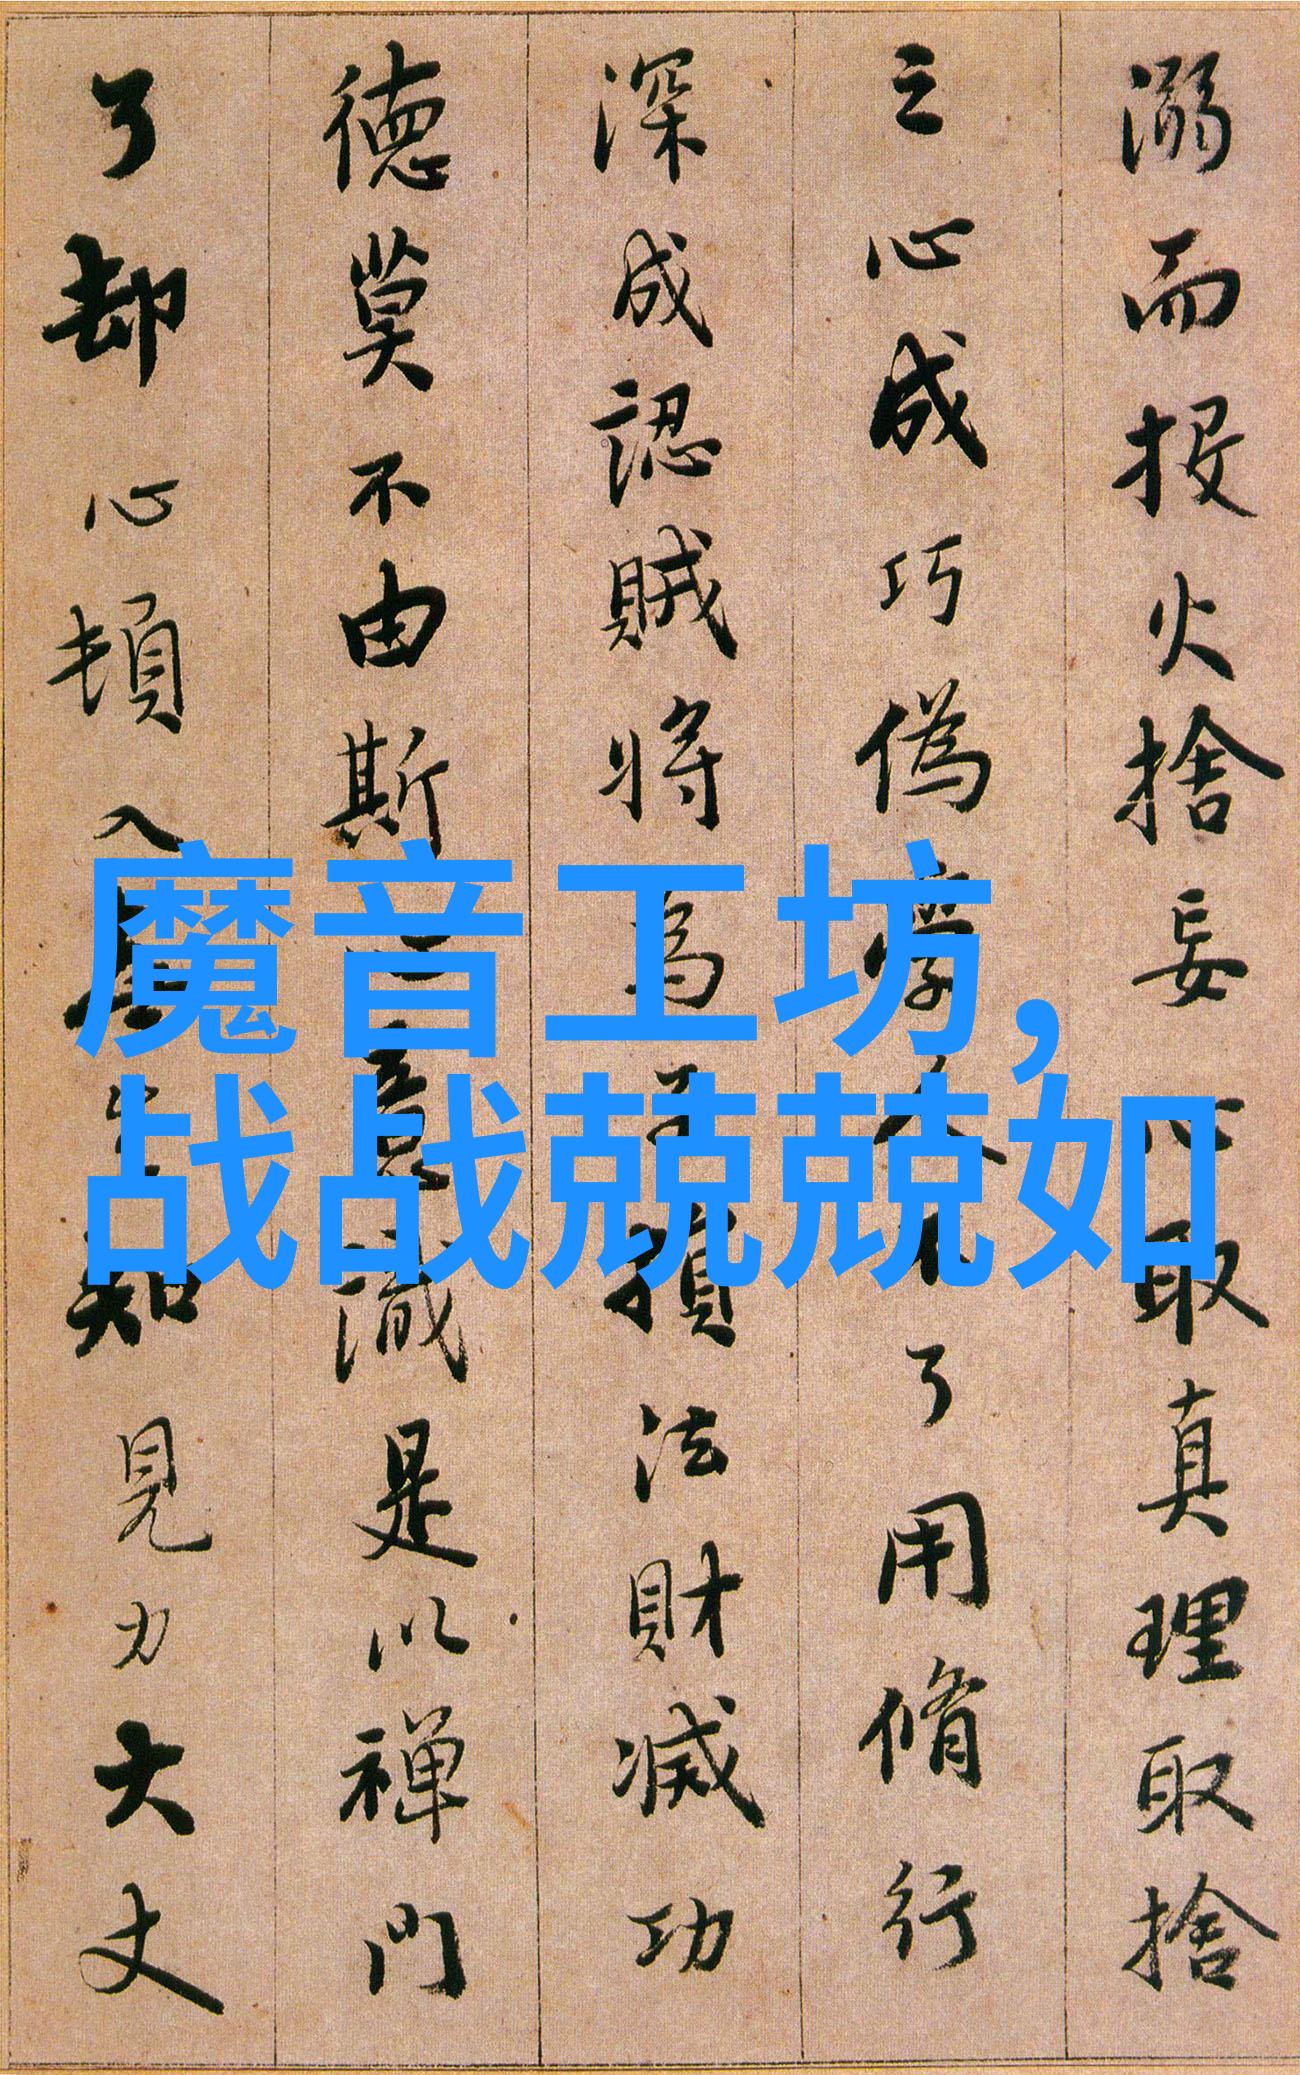 溺而投火捨妄心取真理取捨
之心成巧偽學人不了用脩行
深成認賊將為子損法財滅功
德莫不由斯心意識是以禪門
了却心頓入無生知見力大丈
魔音工坊,
战战兢兢如